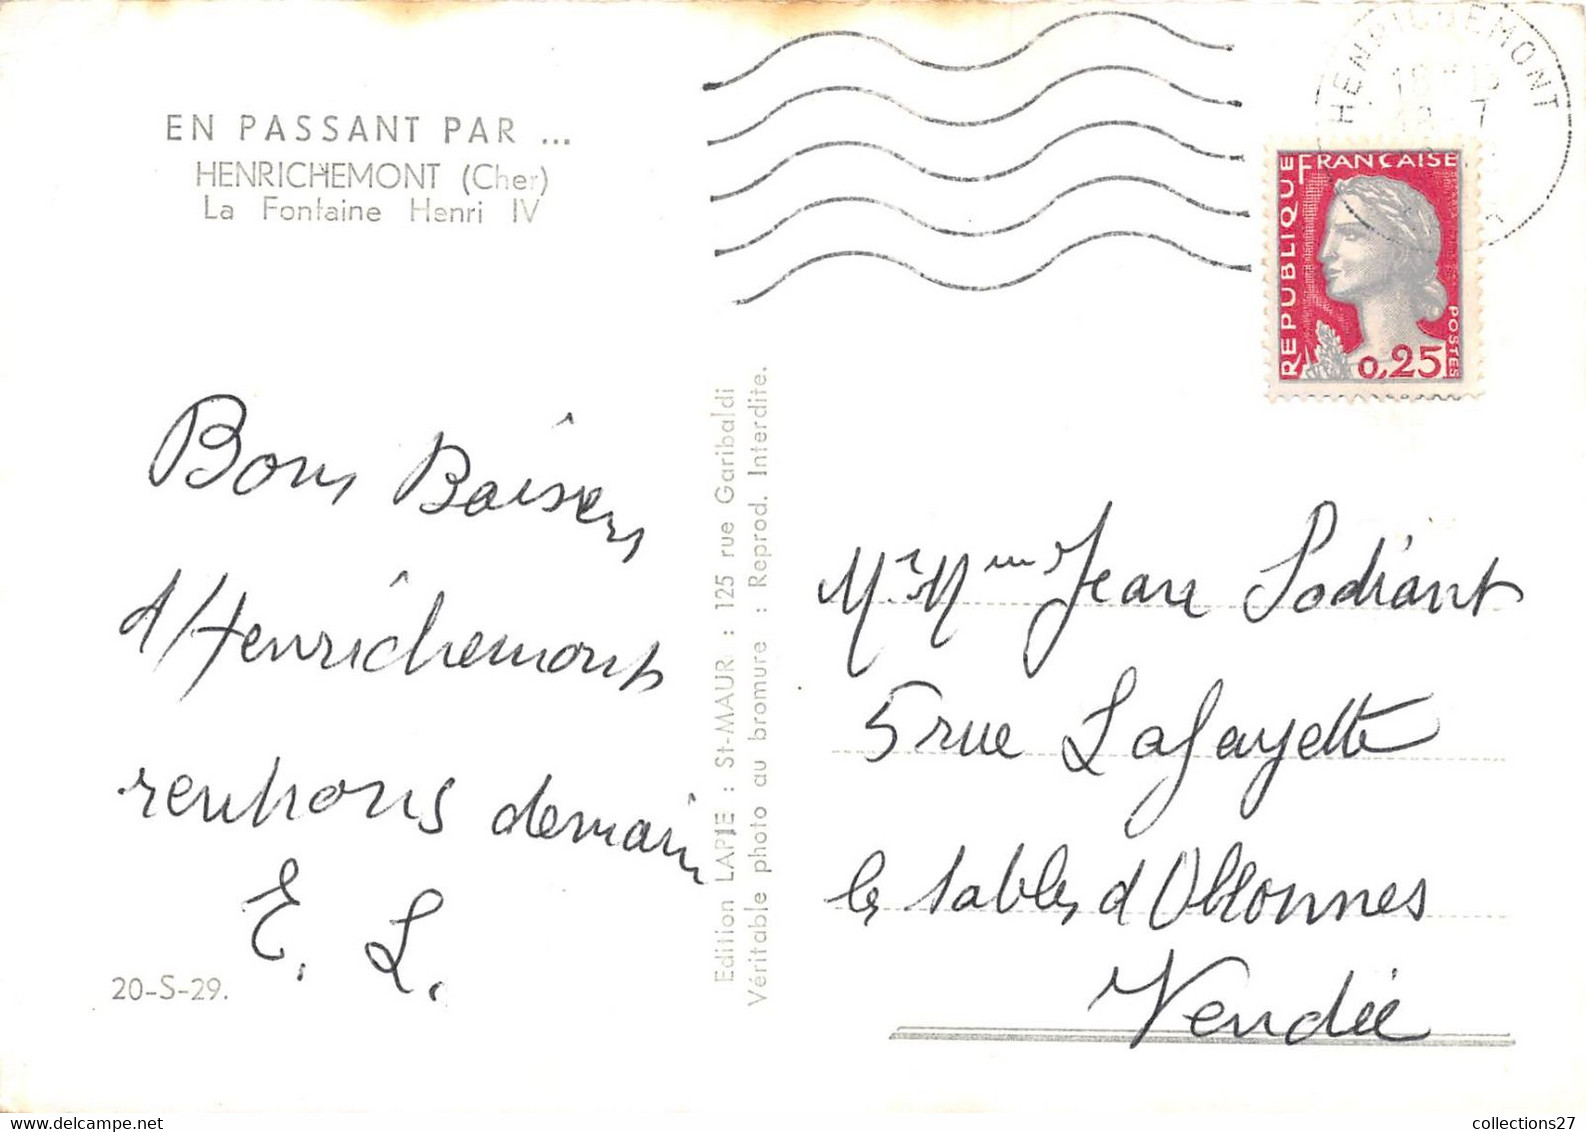 EN PASSANT PAR ...
HENRICHEMONT (Cher)
La Fontaine Henri IV
HENRICHEMONT
RÉPUBLIQUE FRANÇAISE
POSTES
0,25
Bons Baisers
d'Henrichemont
rentrons demain
E. L.
20-S-29.
Edition LAPIE : St-MAUR : 125 rue Garibaldi
Véritable photo au bromure : Reprod. Interdite.
Mr Mme Jean
5 rue Lafayette
les Sables d Ollonnes
Vendée
collections27